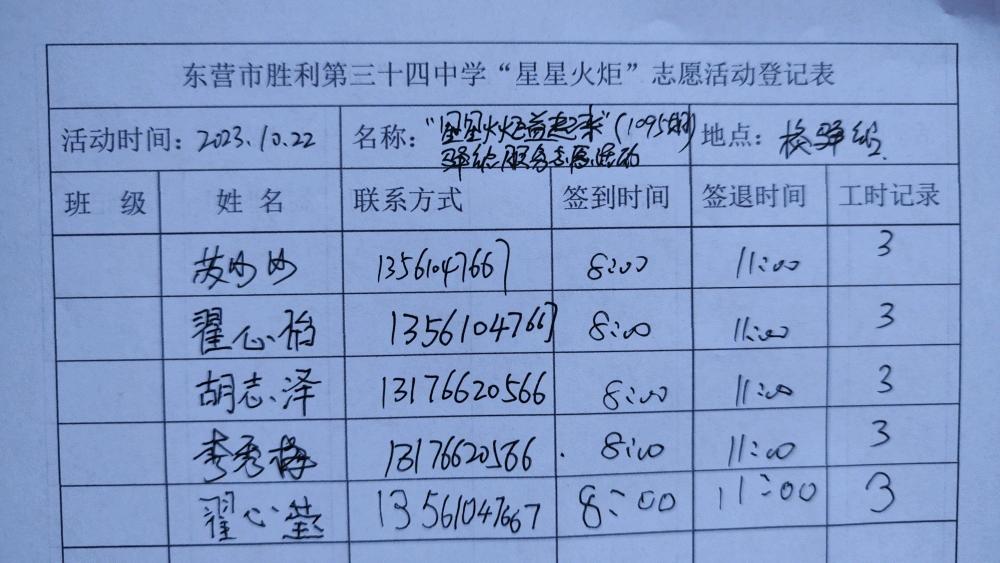 东营市胜利第三十四中学“星星火炬”志愿活动登记表
活动时间：2023.10.22 名称：“星星火炬益起来”(1095期) 地点：校驿站
驿站服务志愿活动
班 级 姓 名 联系方式 签到时间 签退时间 工时记录
苏妙妙 13561047667 8:00 11:00 3
翟心怡 13561047667 8:00 11:00 3
胡志泽 13176620566 8:00 11:00 3
李秀梅 13176620566 8:00 11:00 3
翟心 13561047667 8:00 11:00 3